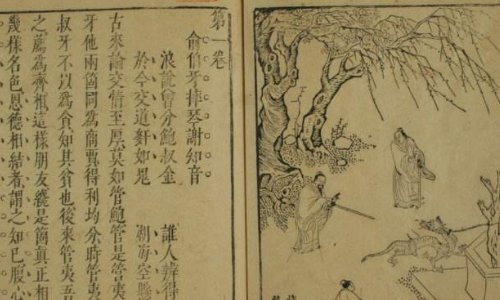 第一卷
俞伯牙摔琴謝知音
浪說曾分鮑叔金　誰人辨得
於今交道奸如鬼　湖海空懸
古來論交情至厚莫如管鮑管是管夷
牙他兩個同為商賈得利均分時管夷
叔牙不以為貪知其貧也後來管夷吾
之薦為齊相這樣朋友纔是箇真正相
幾樣名色恩德相結者謂之知己腹心